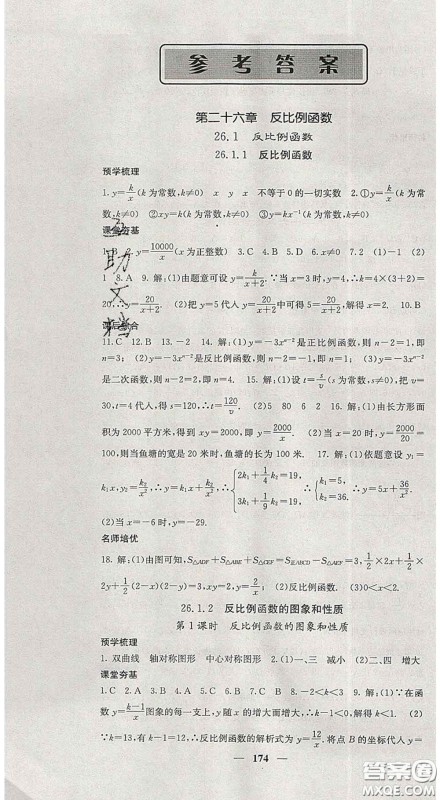 参考答案
第二十六章 反比例函数
26.1 反比例函数
26.1.1 反比例函数
预学梳理
1. y=k/x(k为常数,k≠0) x y x 不等于0的一切实数 2.①y=k/x(k为
常数,k≠0) ②xy=k(k为常数,k≠0) ③y=kx⁻¹(k为常数,k≠0)
课堂夯基
1.B 2. y=10000/x(x为正整数) 3.D 4.B 5.D 6.≠0 7.(1)-1 (2)
1 8.A 9.解:(1)由题意可设y=k/(x+2).∵当x=3时,y=4,∴k=4×(3+2)=
20,∴y=20/(x+2). (2)把y=5代入y=20/(x+2)中可得5=20/(x+2),解得x=2. 10.B
11.C 12.B 13.-2 14.解:(1)y=-3xⁿ⁻²是正比例函数,则n-2=1,即
n=3; (2)y=-3xⁿ⁻²是反比例函数,则n-2=-1,即n=1; (3)y=-3xⁿ⁻²
是二次函数,则n-2=2,即n=4. 15.解:(1)设t=s/v(s为常数,s≠0),把v=
30,t=4代入,得s=120,∴t=120/v. (2)5 80 6 2 16.解:(1)由长方形面
积为2000平方米,得到xy=2000,即y=2000/x. (2)当x=20时,y=2000/20=
100,则当鱼塘的宽是20米时,鱼塘的长为100米. 17.解:(1)依题意设y₁=
k₁x,y₂=k₂/x²,∴y=k₁x+k₂/x²,∴{2k₁+1/4k₂=19, 3k₁+1/9k₂=19, ∴{k₁=5, k₂=36, ∴y=5x+36/x².
(2)当x=-6时,y=-29.
名师培优
18.解:(1)由图可知,S△ADF+S△ABE+S△CEF=S正ABCD-S△AEF=3,∴1/2×2x+1/2×
2y+1/2(2-x)(2-y)=3,∴y=2/x. (2)反比例函数. (3)0<x<2.
26.1.2 反比例函数的图象和性质
第1课时 反比例函数的图象和性质
预学梳理
1.双曲线 轴对称图形 中心对称图形 2.(1)一、三 减小 (2)二、四 增大
课堂夯基
1.C 2.A 3.B 4.B 5.D 6.C 7.A 8.-2<k<3 9.解:(1)∵在函
数y=(k-1)/x图象的每一支上,y随x的增大而增大,∴k-1<0,∴k<1.
(2)∵k=13,∴反比例函数的解析式为y=(k-1)/x=12/x.将点B的坐标代入y=
174
答案圈
MXQE.COM